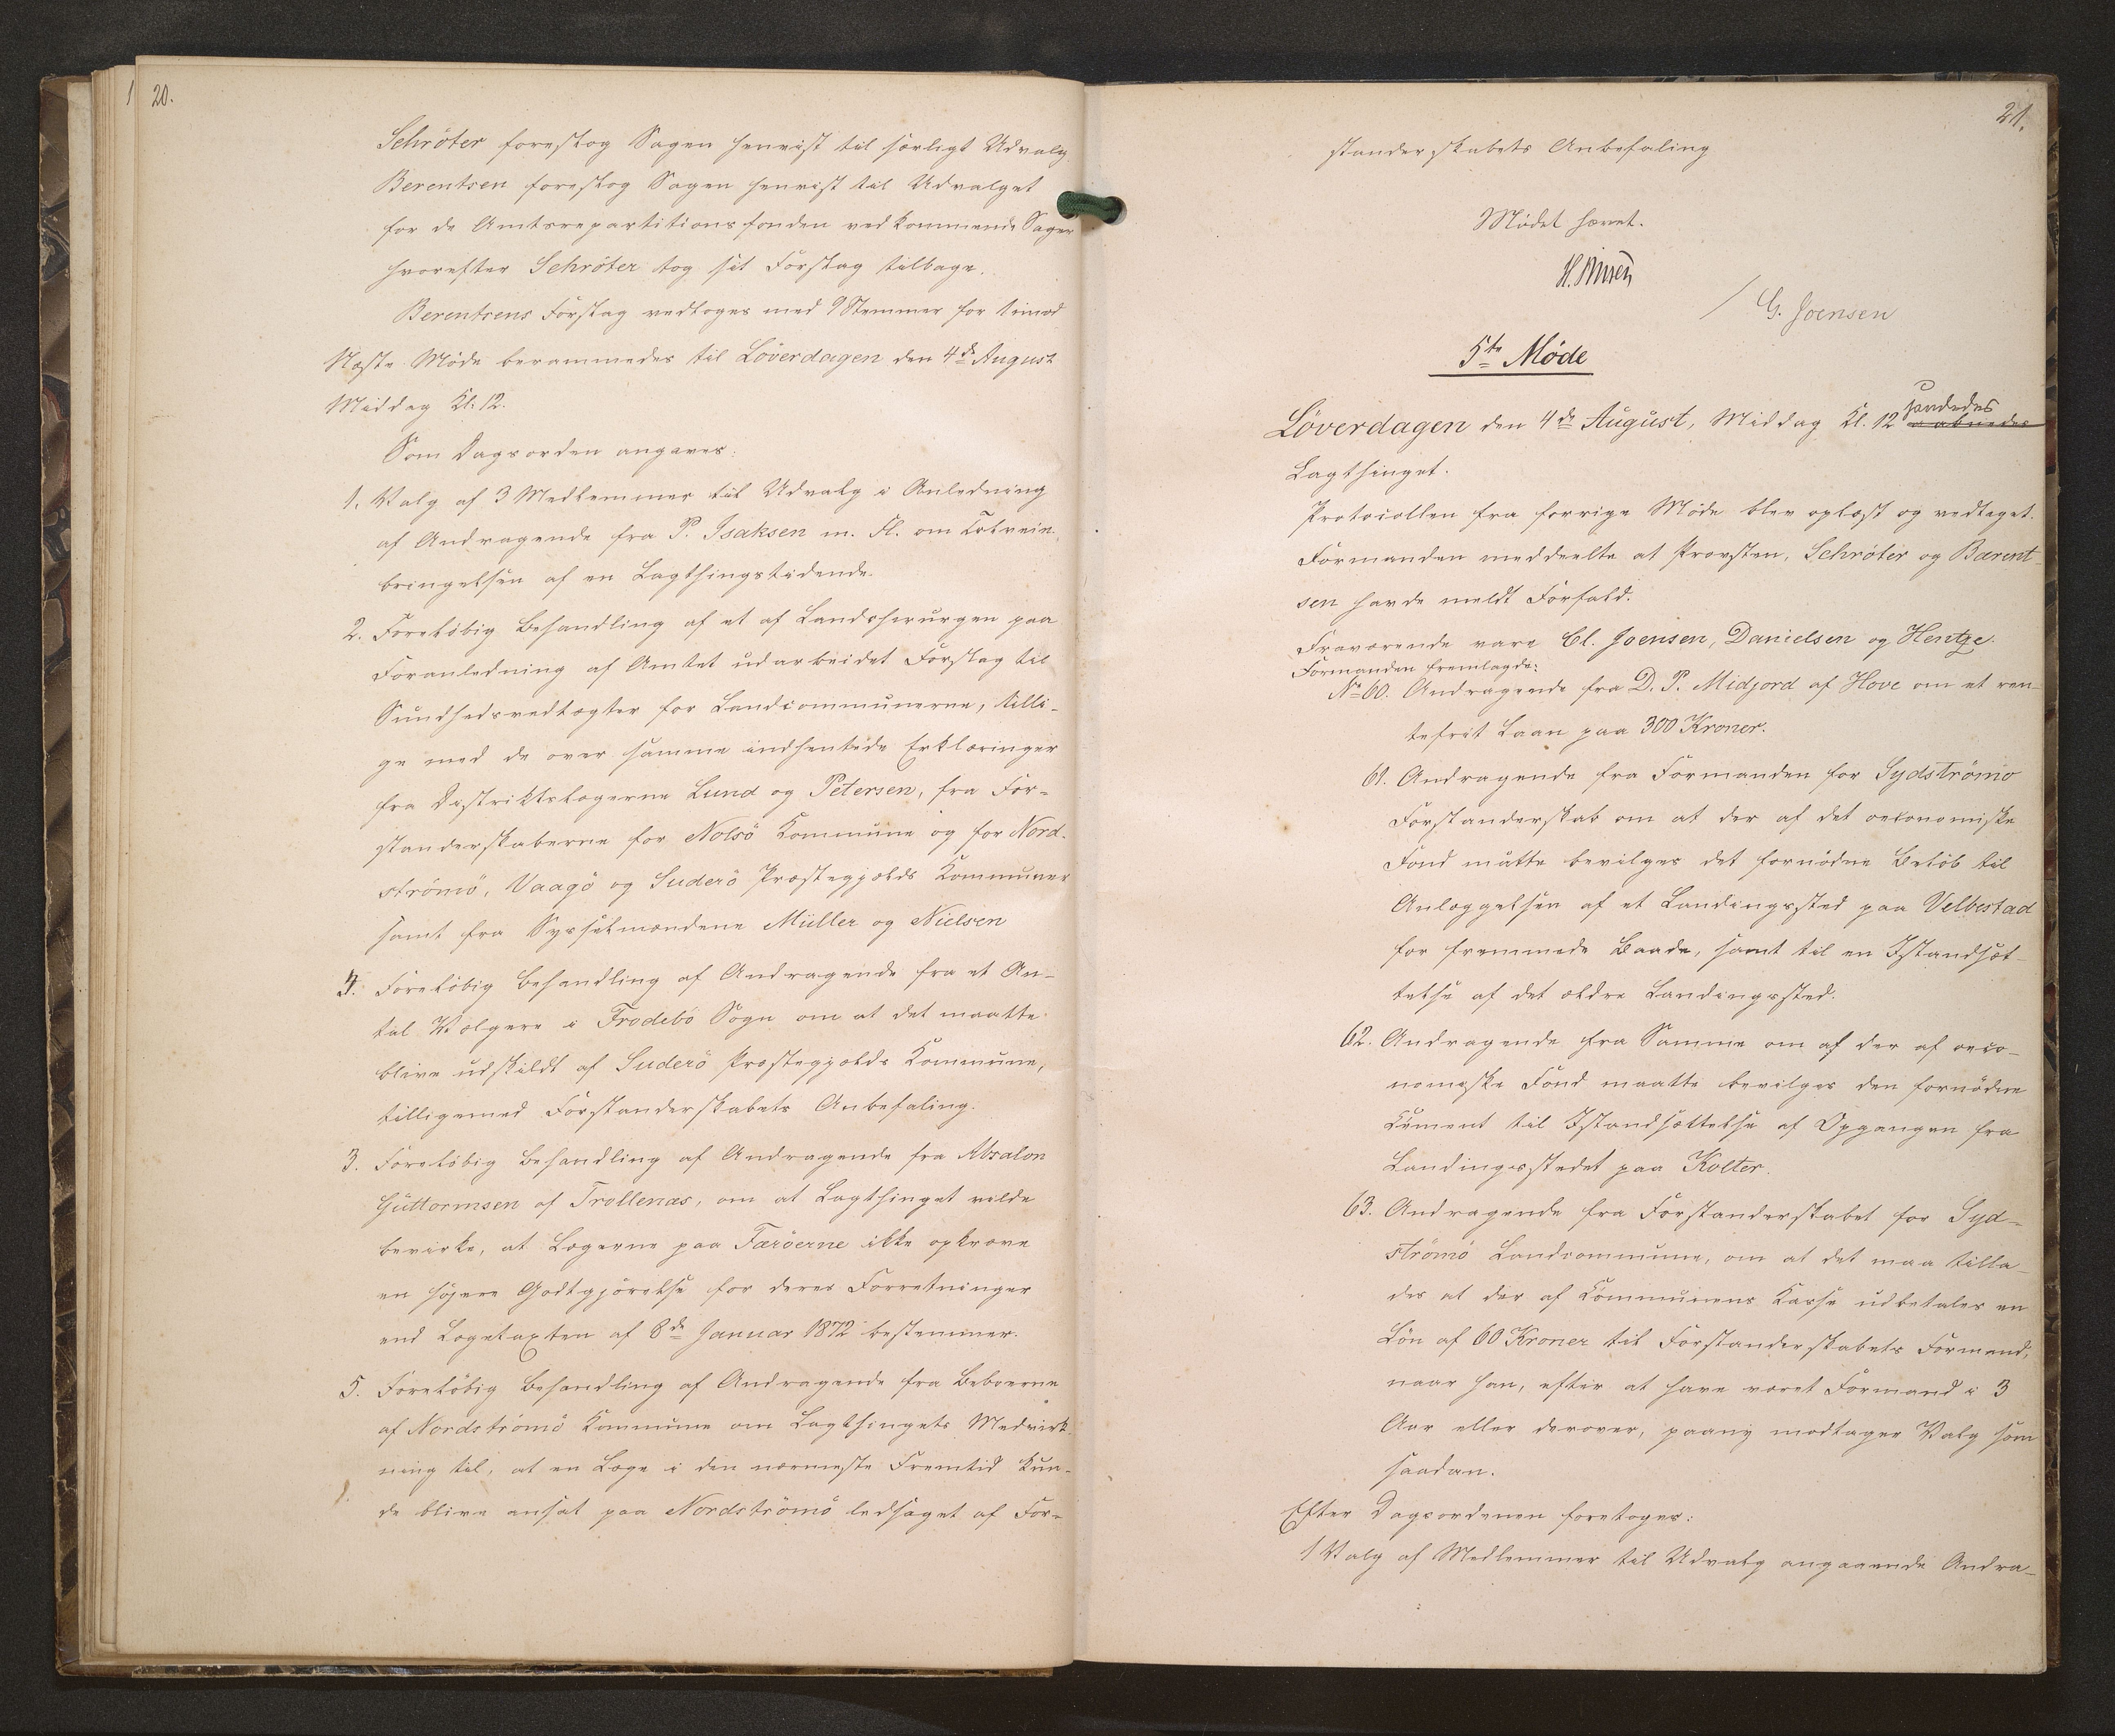 20.
Schröter foreslog Sagen henvist til særligt Udvalg
Berentsen foreslog Sagen henvist til Udvalget
for de Amtsrepartitionsfonden vedkommende Sager
hvorefter Schröter tog sit Forslag tilbage.
Berentsens Forslag vedtoges med 9 Stemmer for 1 imod
Næste Møde berammedes til Löverdagen den 4de August
Middag Kl. 12.
Som Dagsorden angaves:
1. Valg af 3 Medlemmer til Udvalg i Anledning
af Andragende fra P. Isaksen m. Fl. om Tilveie-
bringelsen af en Lagthingstidende.
2. Foreløbig Behandling af et af Landschirurgen paa
Foranledning af Amtet udarbeidet Forslag til
Sundhedsvedtægter for Landcommunerne, tilli-
ge med de over samme indhentede Erklæringer
fra Distriktslægerne Lund og Petersen, fra For-
standerskaberne for Nolsö Kommune og for Nord-
strömö, Vaagö og Suderö Præstegjælds Kommuner
samt fra Sysselmændene Müller og Nielsen
4. Foreløbig Behandling af Andragende fra et An-
tal Vælgere i Frodebö Sogn om at det maatte
blive udskildt af Suderö Præstegjælds Kommune,
tilligemed Forstanderskabets Anbefaling.
3. Foreløbig Behandling af Andragende fra Absalon
Guttormsen af Trollenæs, om at Lagthinget vilde
bevirke, at Lægerne paa Færöerne ikke opkræve
en højere Godtgjörelse for deres Forretninger
end Lægetaxten af 8de Januar 1872 bestemmer.
5. Foreløbig Behandling af Andragende fra Beboerne
af Nordströmö Kommune om Lagthingets Medvirk-
ning til, at en Læge i den nærmeste Fremtid kun-
de blive ansat paa Nordströmö ledsaget af For-
21.
standerskabets Anbefaling
Mödet hævet.
G. Joensen
5te Möde
Löverdagen den 4de August, Middag Kl. 12 holdtes
Lagthinget.
Protocollen fra forrige Möde blev oplæst og vedtaget.
Formanden meddeelte at Provsten, Schröter og Bærent-
sen havde meldt Forfald.
Fraværende vare Cl. Joensen, Danielsen og Hentze.
Formanden fremlagde:
No 60. Andragende fra D. P. Midjord af Hove om et ren-
tefrit Laan paa 300 Kroner.
61. Andragende fra Formanden for Sydströmö
Forstanderskab om at der af det oeconomiske
Fond måtte bevilges det fornödne Belöb til
Anlæggelsen af et Landingssted paa Velbestad
for fremmede Baade, samt til en Istandsæt-
telse af det ældre Landingssted.
62. Andragende fra Samme om at der af oeco-
nomiske Fond maatte bevilges den fornödne
Cement til Istandsættelse af Opgangen fra
Landingsstedet paa Kolter.
63. Andragende fra Forstanderskabet for Syd-
strömö Landcommune, om at det maa tilla-
des at der af Communens Kasse udbetales en
Lön af 60 Kroner til Forstanderskabets Formand,
naar han, efter at have været Formand i 3
Aar eller derover, paany modtager Valg som
saadan.
Efter Dagsordenen foretoges:
1 Valg af Medlemmer til Udvalg angaaende Andra-